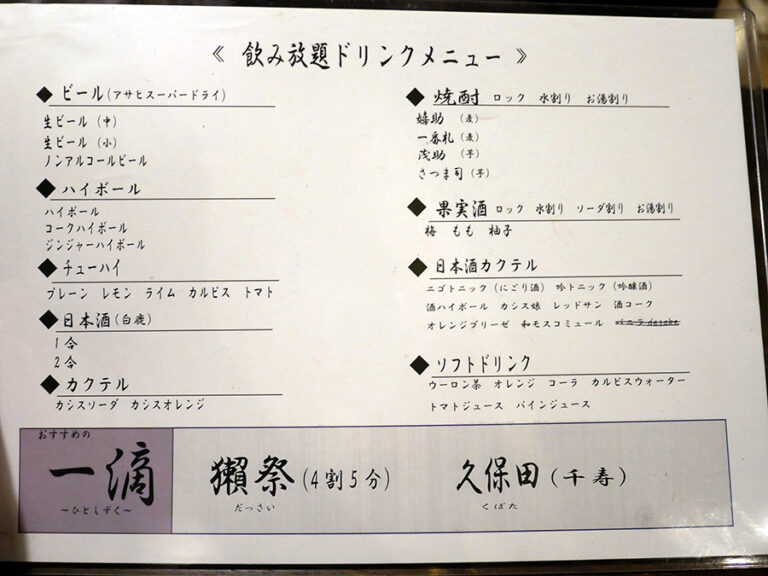 《 飲み放題ドリンクメニュー 》
◆ ビール(アサヒスーパードライ)
生ビール (中)
生ビール (小)
ノンアルコールビール
◆ ハイボール
ハイボール
コークハイボール
ジンジャーハイボール
◆ チューハイ
プレーン レモン ライム カルピス トマト
◆ 日本酒(白鹿)
1合
2合
◆ カクテル
カシスソーダ カシスオレンジ
◆ 焼酎 ロック 水割り お湯割り
嬉助 (麦)
一番札 (麦)
茂助 (芋)
さつま司 (芋)
◆ 果実酒 ロック 水割り ソーダ割り お湯割り
梅 もも 柚子
◆ 日本酒カクテル
ニゴトニック (にごり酒) 吟トニック (吟醸酒)
酒ハイボール カシス娘 レッドサン 酒コーク
オレンジブリーゼ 和モスコミュール バニラdesake
◆ ソフトドリンク
ウーロン茶 オレンジ コーラ カルピスウォーター
トマトジュース パインジュース
おすすめの
一滴
～ひとしずく～
獺祭(4割5分)
だっさい
久保田(千寿)
くぼた